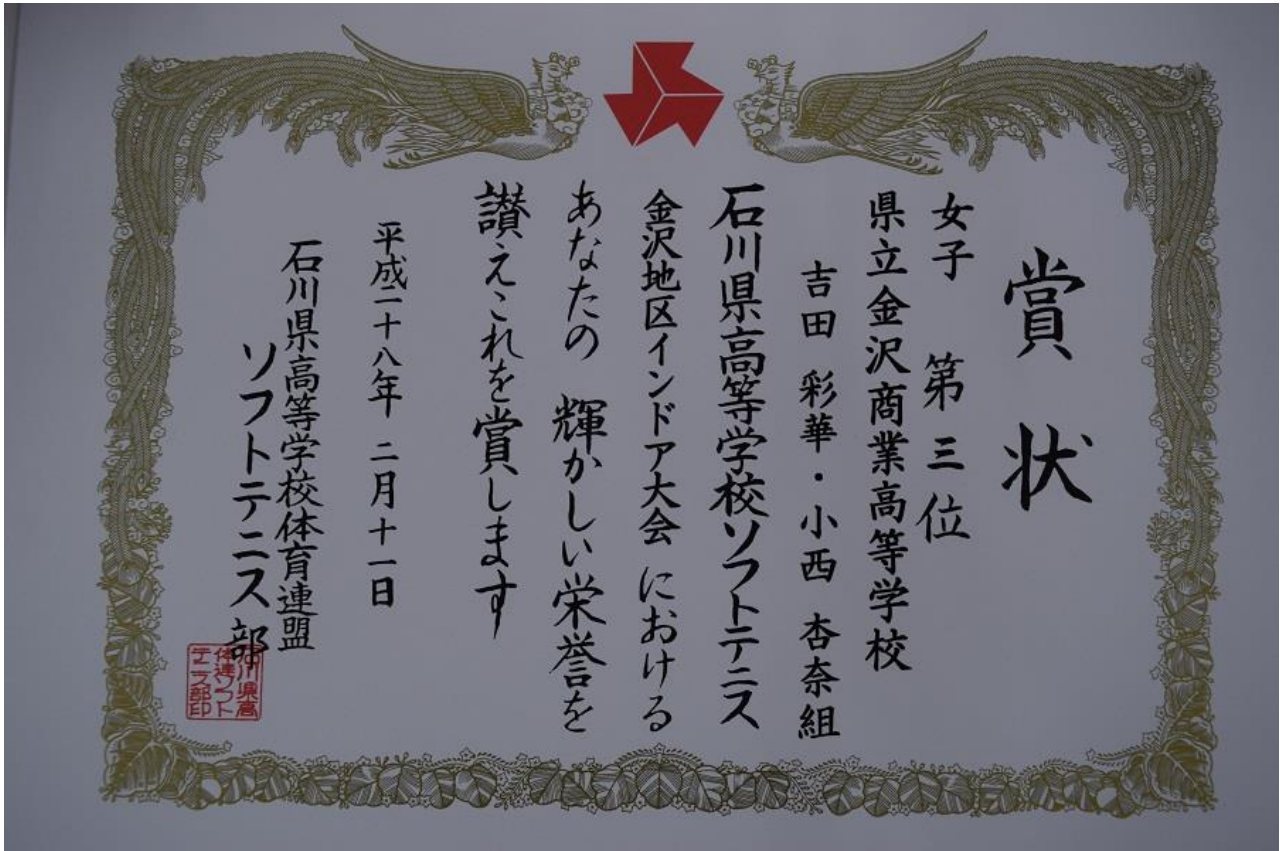 賞状
女子 第三位
県立金沢商業高等学校
吉田 彩華・小西 杏奈組
石川県高等学校ソフトテニス
金沢地区インドア大会 における
あなたの 輝かしい栄誉を
讃えこれを賞します
平成一十八年 二月十一日
石川県高等学校体育連盟
ソフトテニス部
石川県高
体連ソフト
テニス部印